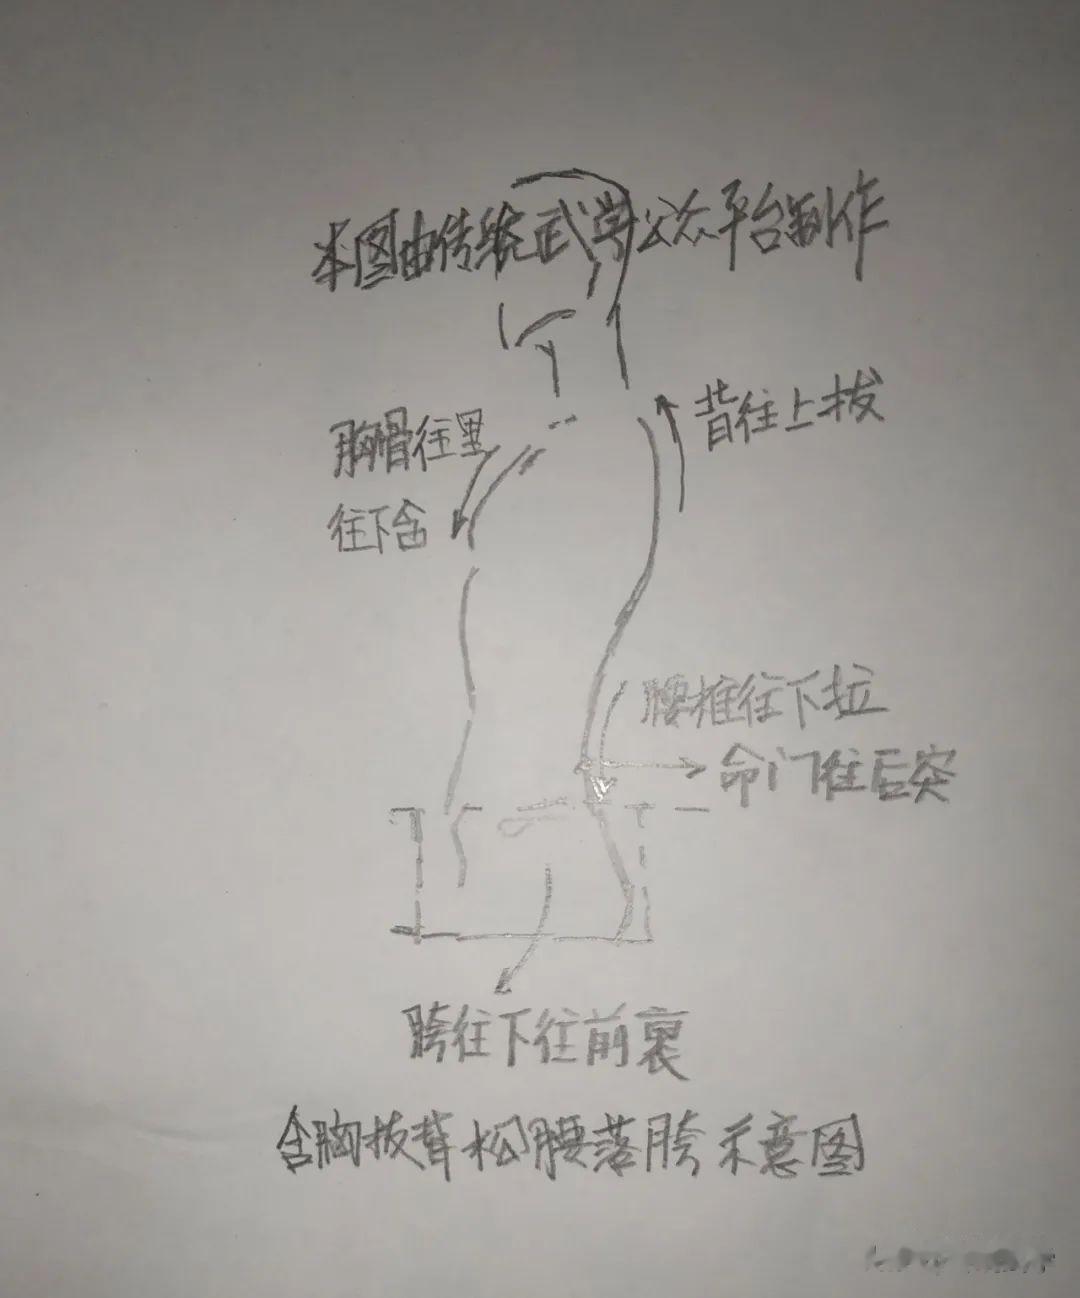 本图由传统武学公众平台制作
胸骨往里
往下含
背往上拔
腰椎往下拉
命门往后突
胯往下往前裹
含胸拔背松腰落胯示意图